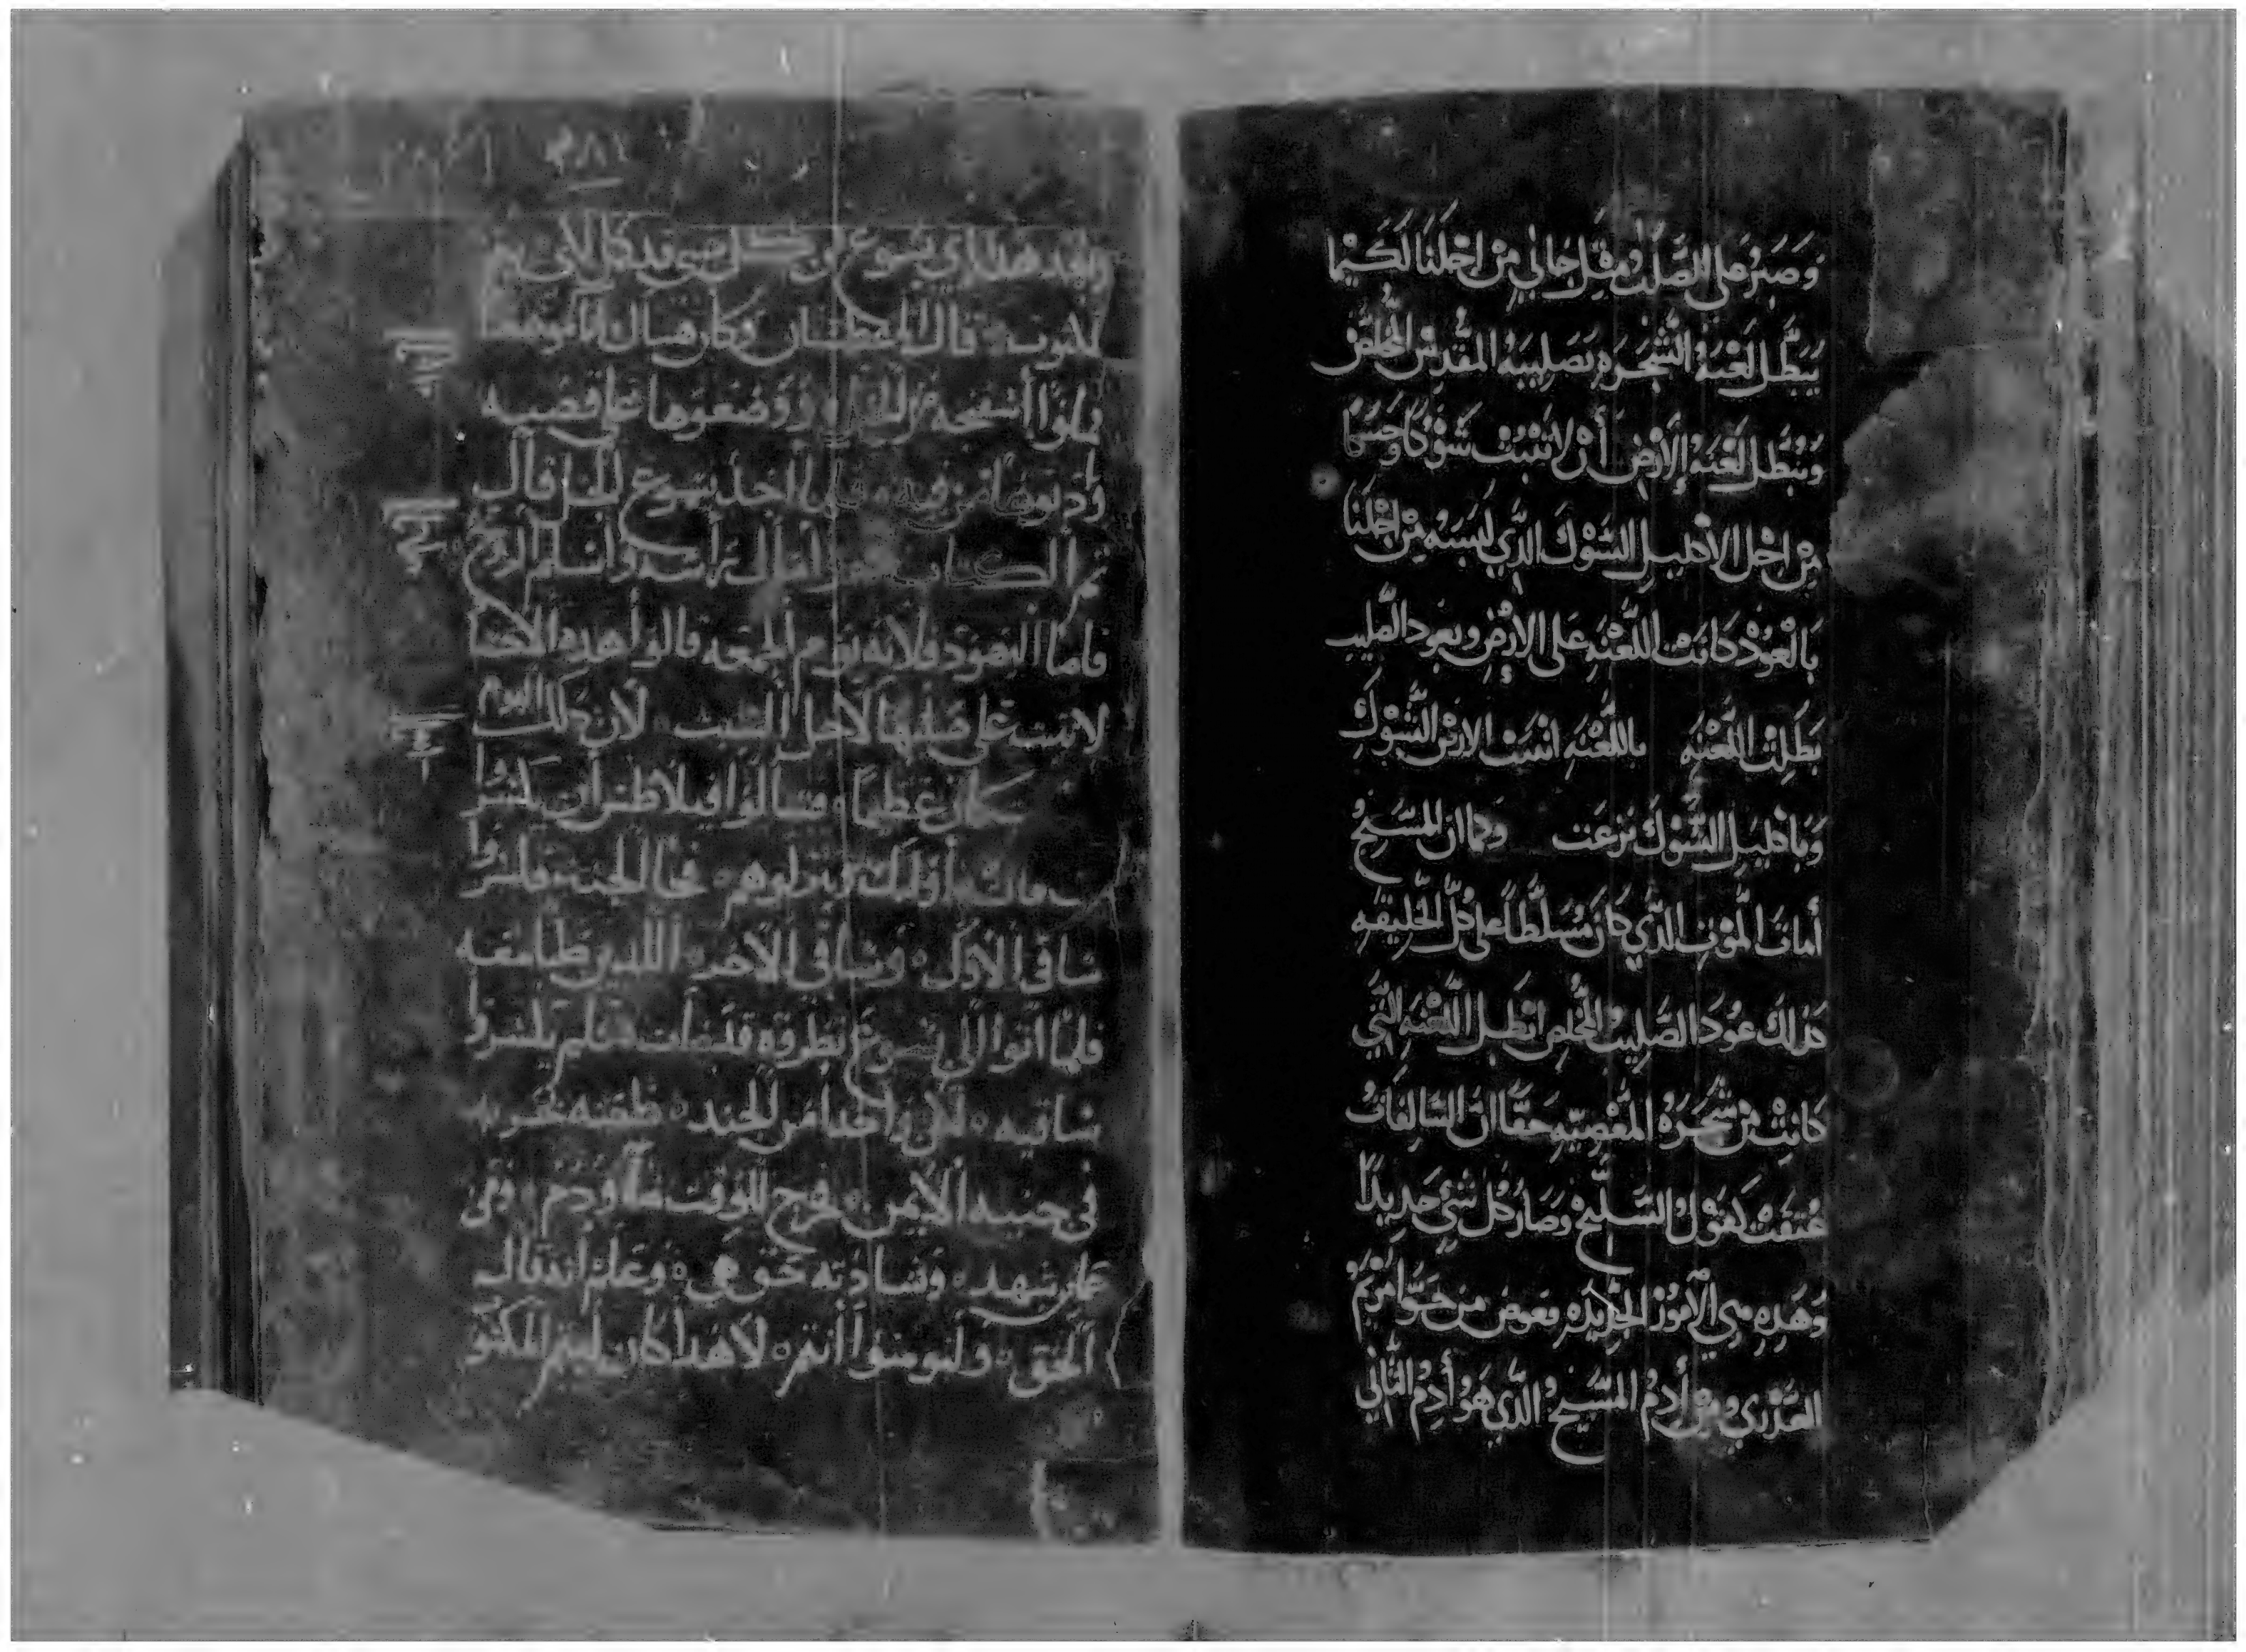 وَصَبَرَ على الصَّلْب مثل جاني مِنْ اجْلنَا لَكَيْما
يَبَطِّل لَعْنَة الشَّجَرَه بَصَلِيبَهُ المُقَدِسْ المُخلصْ
وَيُبْطِل لَعْنَة الأَرْض أَنْ لا تنْبُتْ شَوْكًا وَحَسَكًا
مِنْ اجْل الاكليل الشَوْكَ الدِّي لَبَسَهُ مِنْ اجْلنَا
بَالْعُوْدْ كانَتْ اللَّعْنَهِ عَلى الارْضِ وبعود الصَّليب
بَطَلِتْ اللَّعْنَهِ باللعْنَهِ انْبَتَتْ الارْض الشَّوْكِ
وَبَاكليل الشَّوْكَ نزعَت وَكما ان المسَّيح
أماتَ المَّوْت الدَّي كَانَ مُسَلَّطاً على كُلَّ الخَليقَهِ
كدلك عُودَ الصَّليبْ المُخلص ابْطَل اللَّعْنَهِ الّتَي
كَانتْ مْن شَجَرَهْ المَّعْصِيّهِ حَقًا انّ السَّالِفات
عُتقَتْ كَقَوْلْ السَّليْحْ وَصَارْ كُلْ شَيْ جَديْداً
وَهَدِهِ هي الأمُوْر الجديدَه بعوض من حَوَّا مَرْيَمْ
العدْري ومنْ أَدمُ المسَّيح الدَّي هَوَ أَدمُ الثَّاني
٢٨١
وبعد هدا راي يسوع ان كل شي قد كمل لكي يتم
المكتوب قال انا عطشان وكان هناك انا موضوعا
فملوا اسفنجه من الخل ووضعوها على قصبه
وادنوها من فيه فلما اخد يسوع الخل قال
تم الكتاب وامال رأسه وأسلم الروح
فاما اليهود فلانه يوم الجمعه قالوا هده الاجساد
لا تبيت على صلبها لاجل السبت لأن دلك اليوم
كان عظيماً فسالوا فيلاطس أن يكسروا
ساقات أوليك وينزلوهم فجا الجند فكسروا
ساقى الأول وساقى الآخر اللدين صلبا معه
فلما اتوا الي يسوع نظروه قد مات فلم يكسروا
ساقيه لكن واحدا من الجند طعنه بحربه
في جنبه الأيمن فخرج للوقت ماء ودم ومن
عاين شهد وشهادته حق هي وعلم أنه قال
الحق ولتومنوا أنتم لأن هدا كان ليتم المكتو